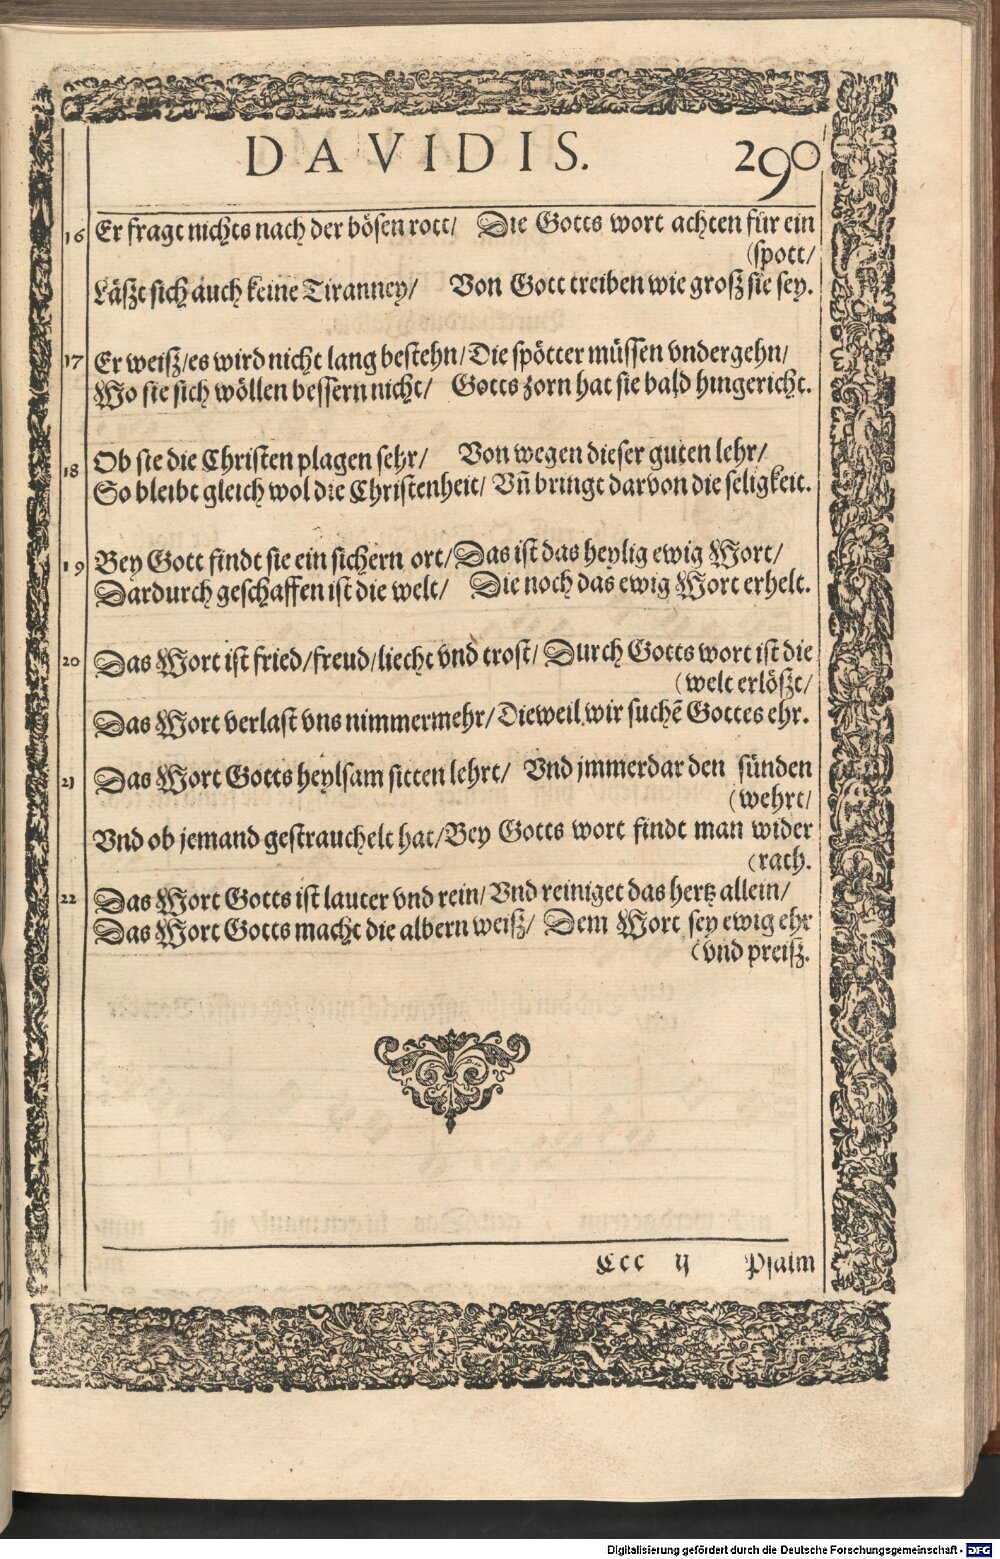 DAVIDIS. 290
16 Er fragt nichts nach der bösen rott/ Die Gotts wort achten für ein
(spott/
Läßt sich auch keine Tiranney/ Von Gott treiben wie groß sie sey.
17 Er weiß/es wird nicht lang bestehn/Die spötter müssen vndergehn/
Wo sie sich wöllen bessern nicht/ Gotts zorn hat sie bald hingericht.
18 Ob sie die Christen plagen sehr/ Von wegen dieser guten lehr/
So bleibt gleich wol die Christenheit/ Vñ bringt darvon die seligkeit.
19 Bey Gott findt sie ein sichern ort/Das ist das heylig ewig Wort/
Dardurch geschaffen ist die welt/ Die noch das ewig Wort erhelt.
20 Das Wort ist fried/freud/liecht vnd trost/ Durch Gotts wort ist die
(welt erlößt/
Das Wort verlast vns nimmermehr/Dieweil wir suchẽ Gottes ehr.
21 Das Wort Gotts heylsam sitten lehrt/ Vnd jmmerdar den sünden
(wehrt/
Vnd ob jemand gestrauchelt hat/Bey Gotts wort findt man wider
(rath.
22 Das Wort Gotts ist lauter vnd rein/Vnd reiniget das hertz allein/
Das Wort Gotts macht die albern weiß/ Dem Wort sey ewig ehr
(vnd preiß.
Ccc ij Psalm
Digitalisierung gefördert durch die Deutsche Forschungsgemeinschaft - DFG